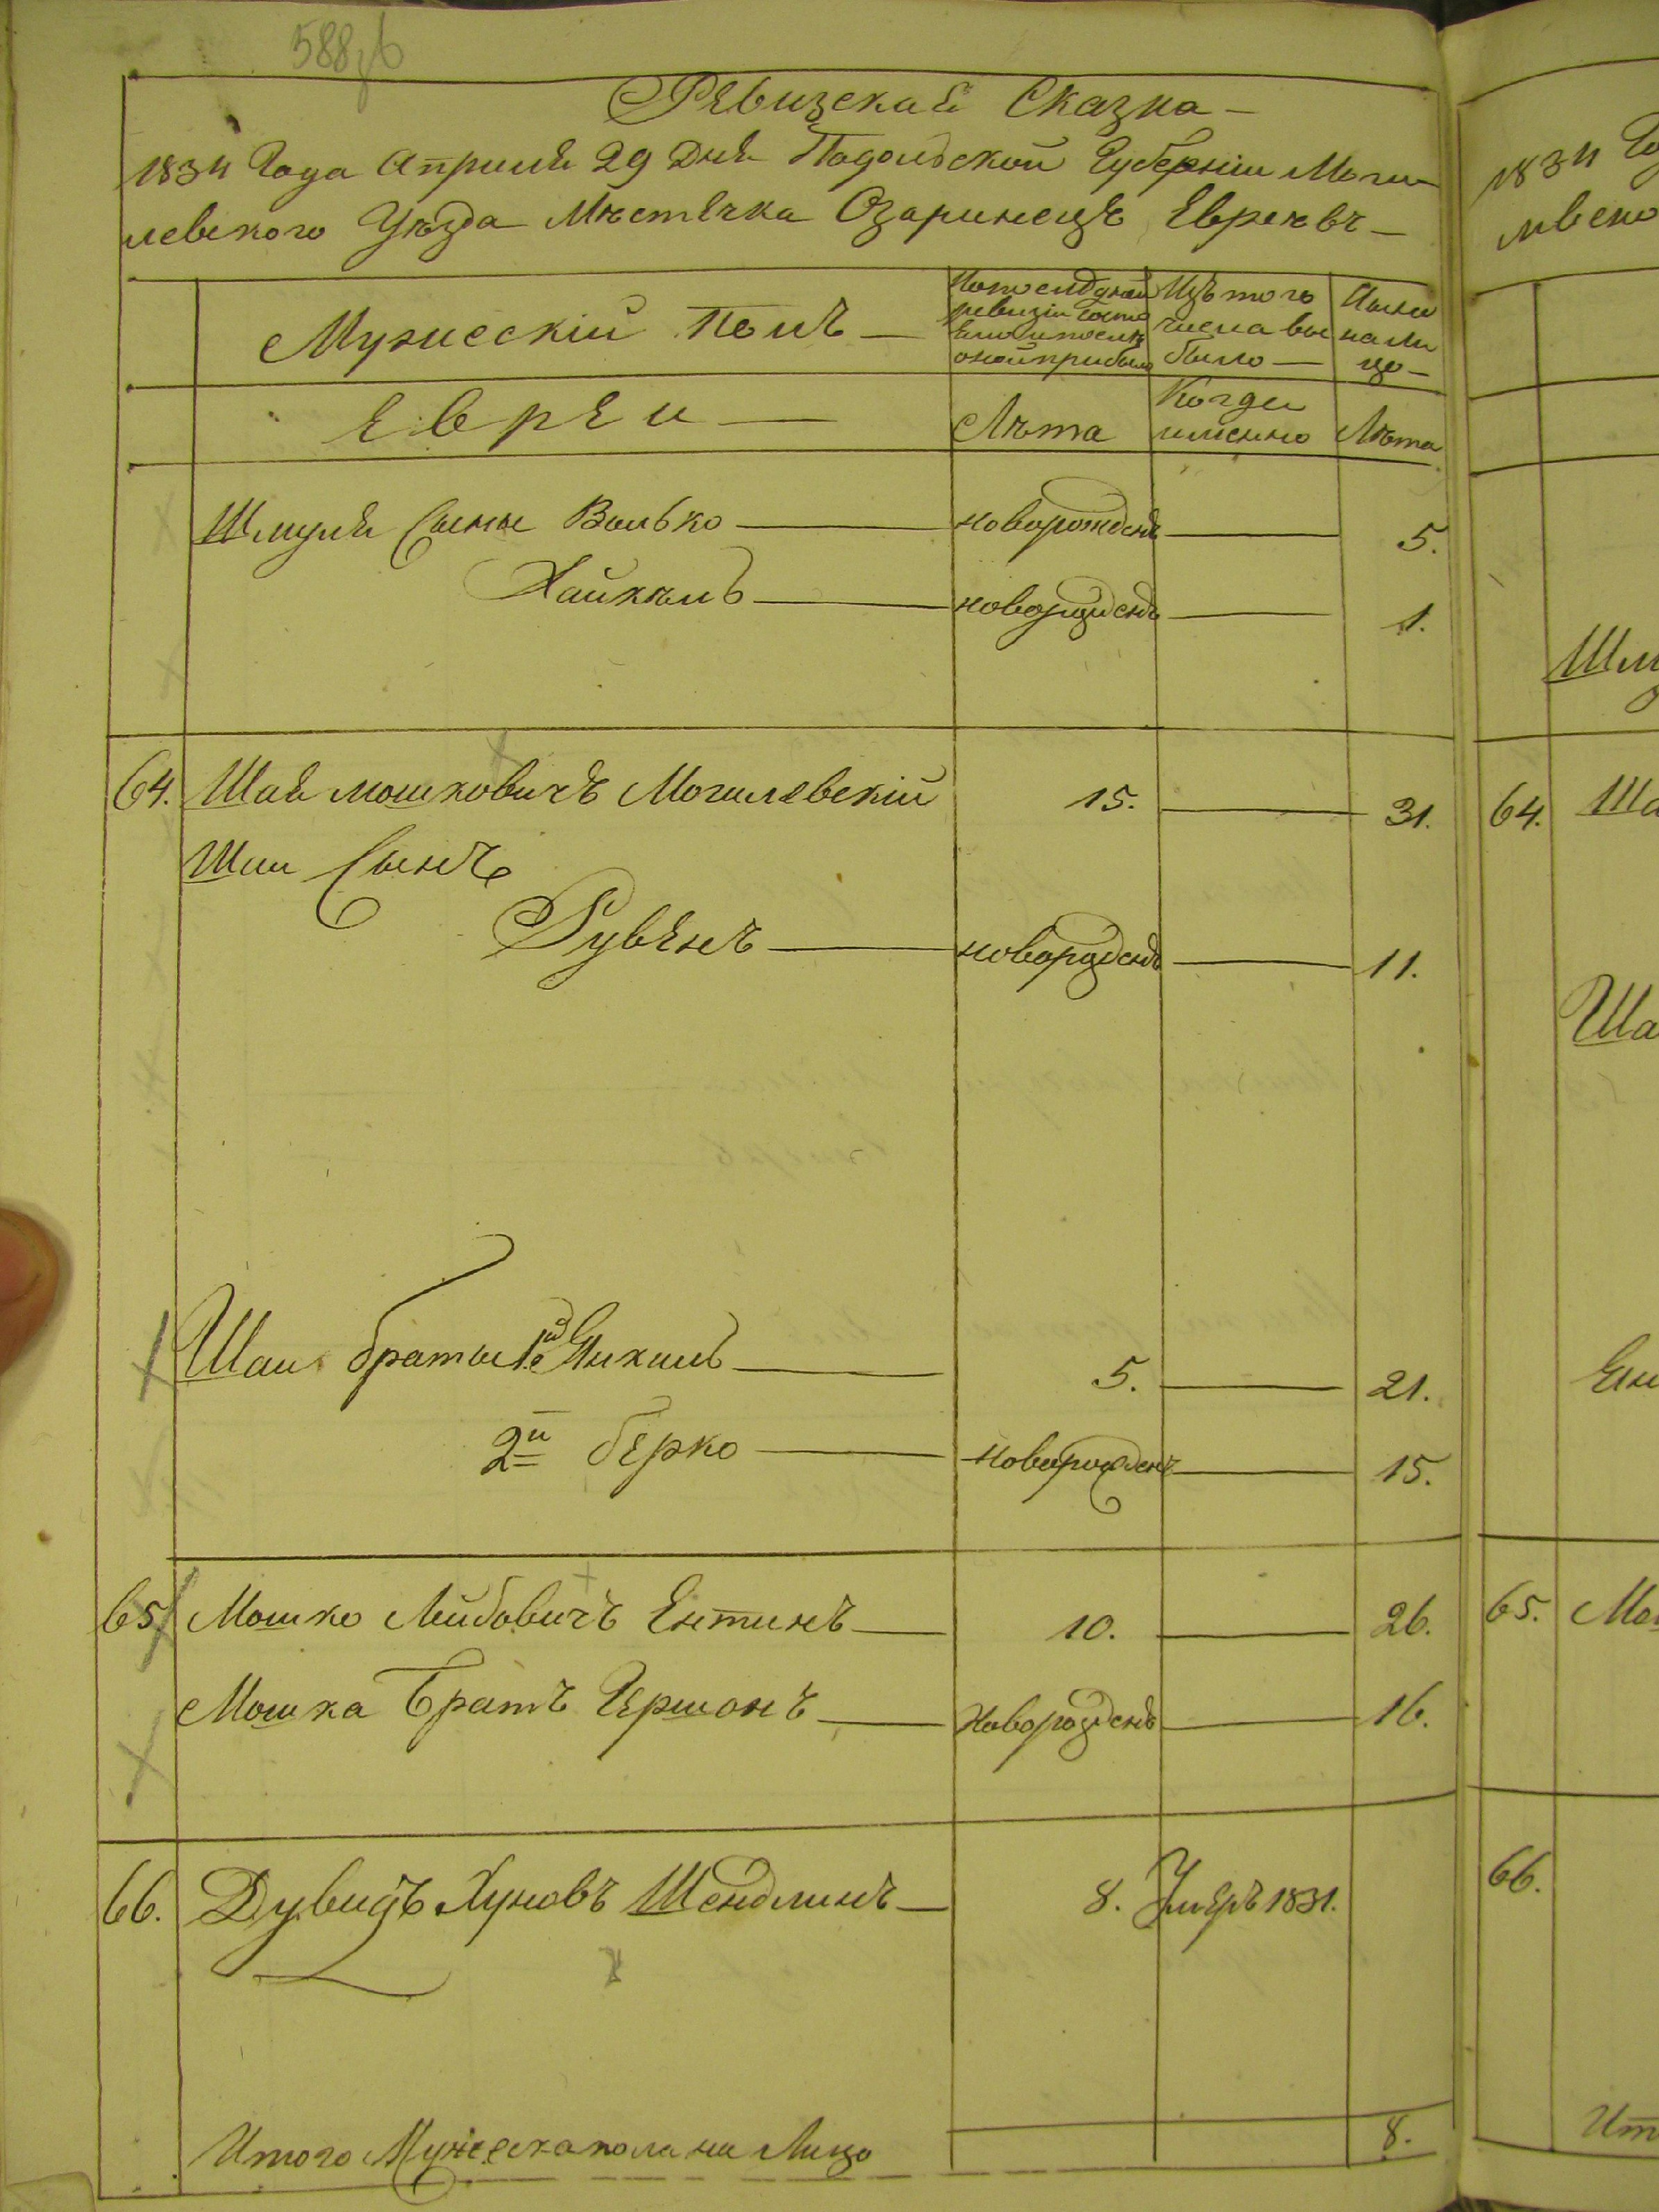 588об
Ревизская Сказка
1834 Года Апреля 29 Дня Подольской Губерніи Моги
левского Уезда Мѣстечка Озаринецъ Евреевъ
Мужескій полъ
По последней ревизіи состо яло и после оной прибыло
Изъ того числа вы было
Ныне на ли цо
Евреи
Лѣта
Когда именно
Лѣта
Шмуля Сыны Волько новорожденъ 5.
Хайкель новорожденъ 1.
64. Шая мошковичъ Могилевскій 15. 31.
Шаи Сынъ
Рувенъ новорожденъ 11.
Шаи братья 1й 5. 21.
2й берко новорожденъ 15.
65. Мошко Лейбовичъ Ентинъ 10. 26.
Мошка Братъ Гершонъ Новорожденъ 16.
66. Дувидъ Хуновъ Шендлинъ 8. Умеръ 1831.
Итого Мужеска пола на Лицо 8.
1834 Го
64. Ша
Ша
65. Мо
66.
Ит